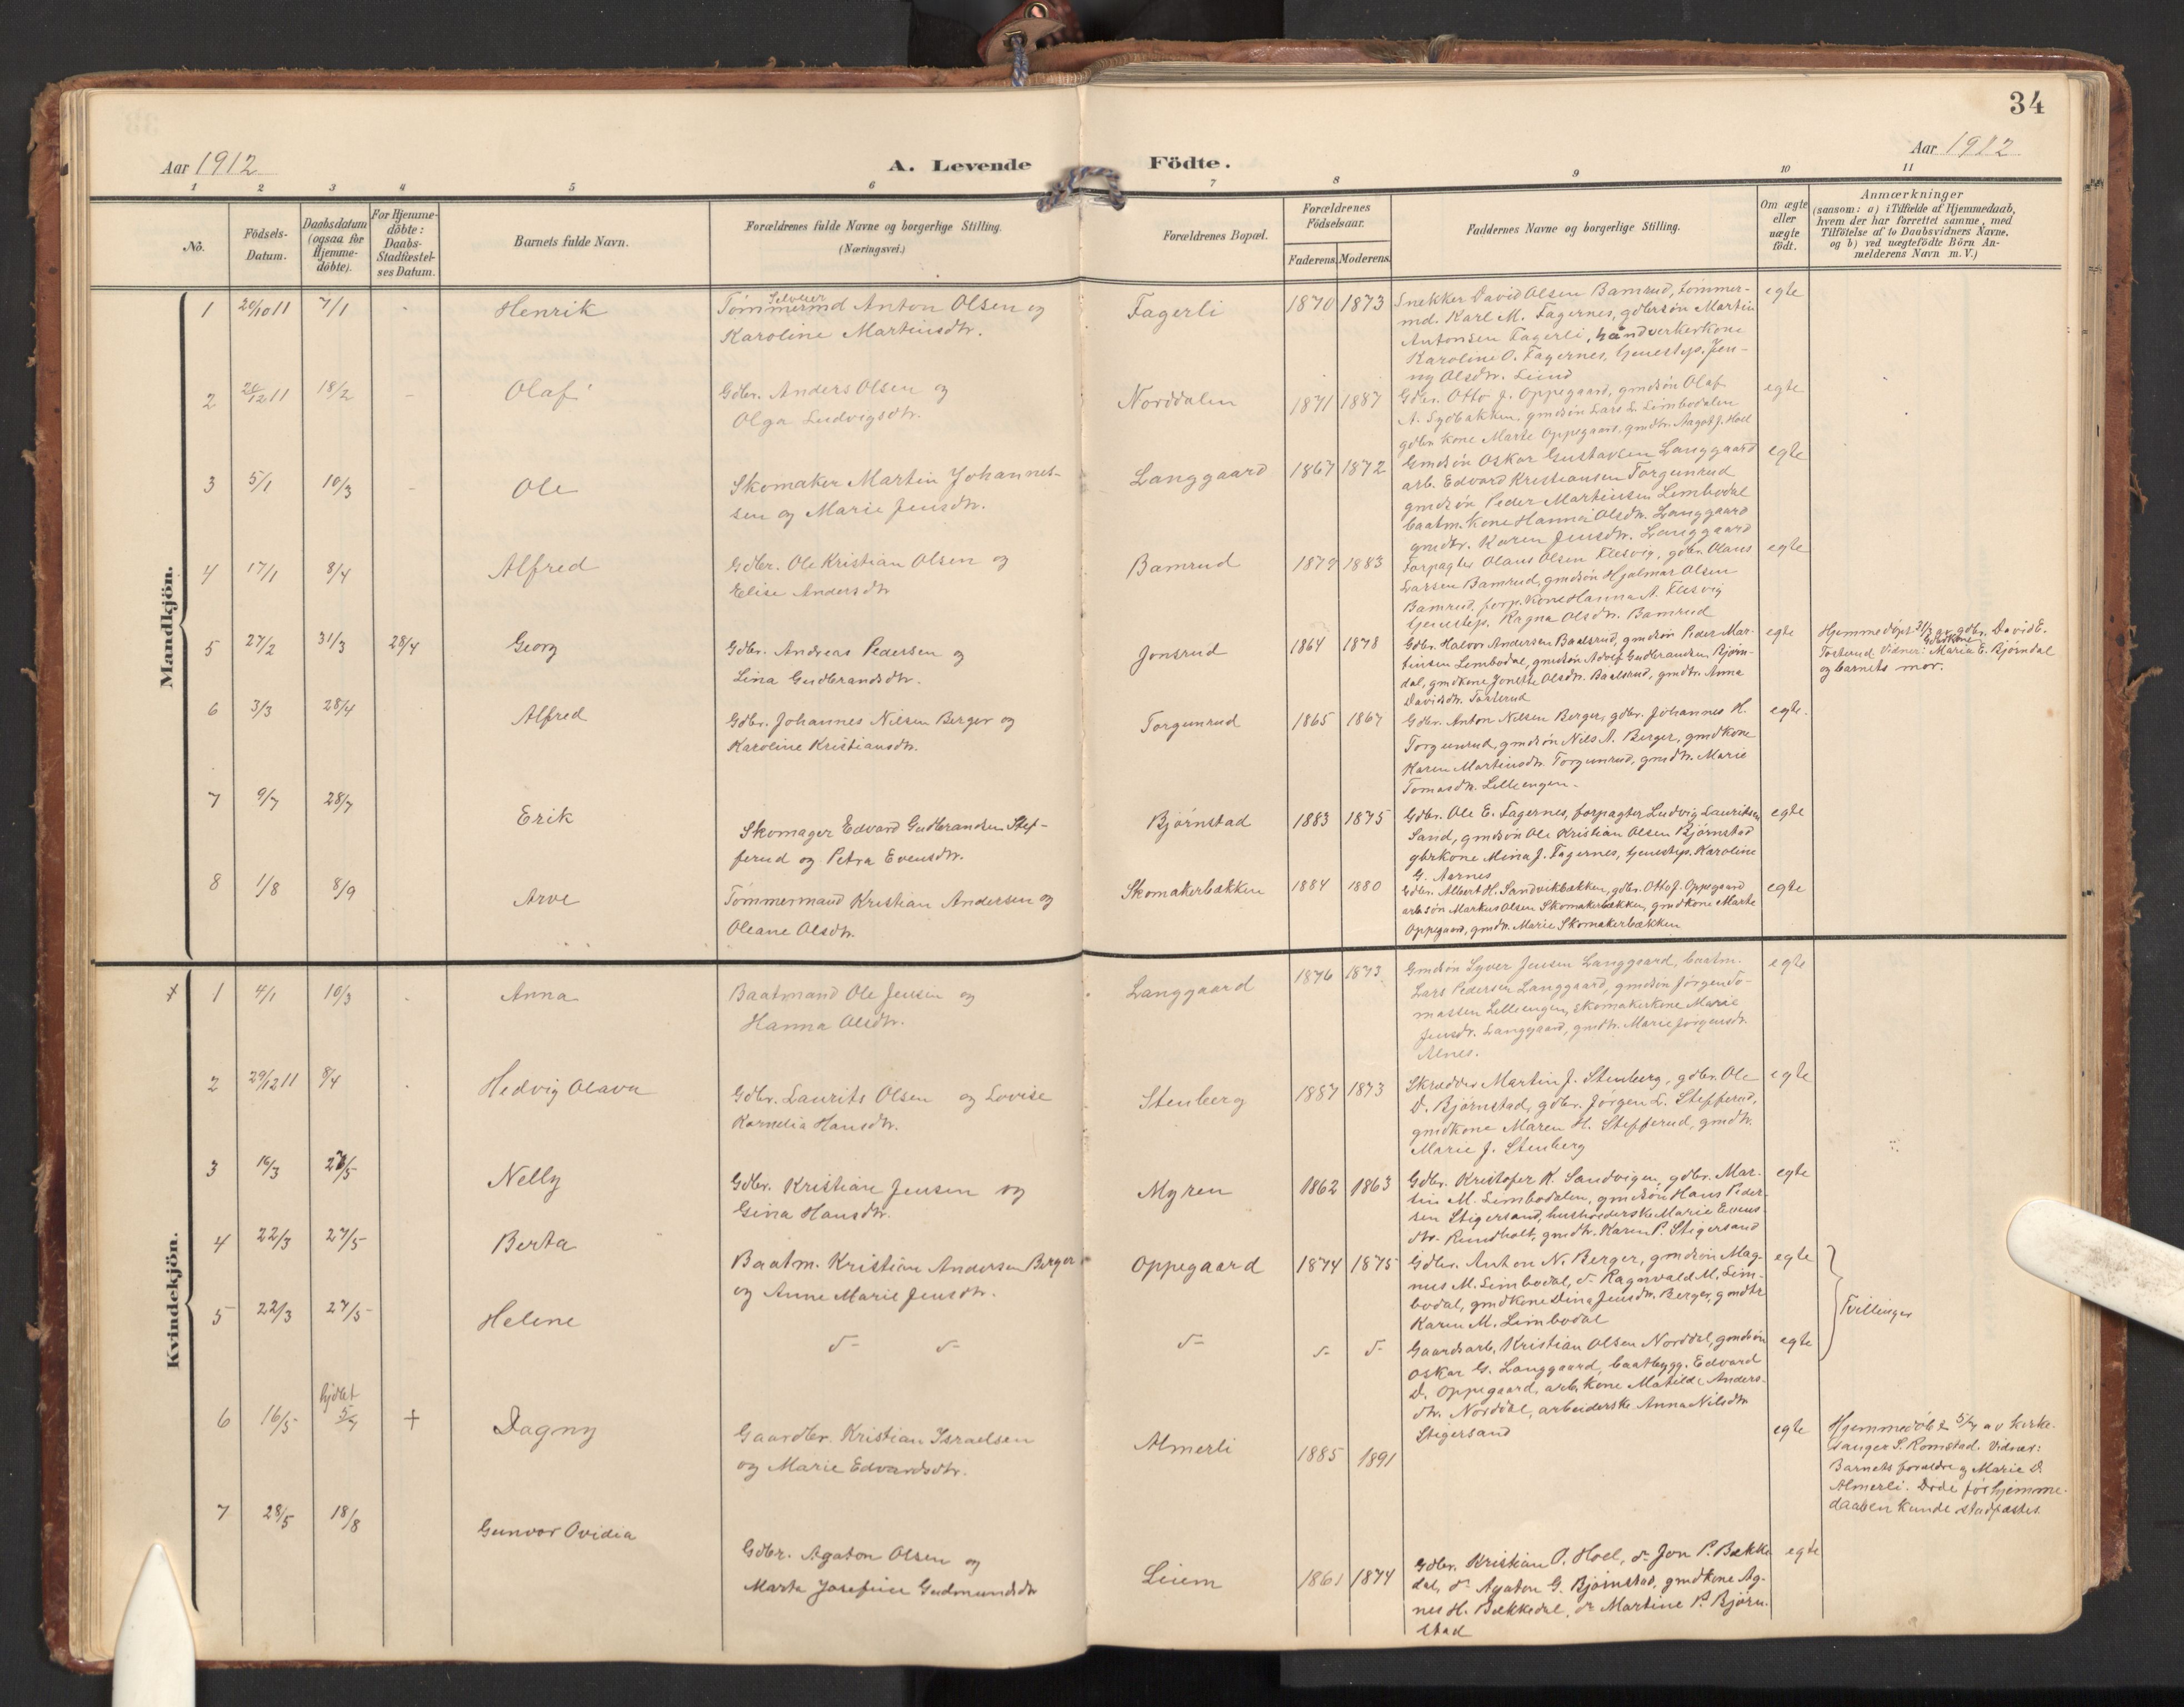 34
Aar 1912
A. Levende Födte.
Aar 1912
1 2 3 4 5 6 7 8 9 10 11
No.
Födsels-Datum.
Daabsdatum (ogsaa for Hjemme-döbte).
For Hjemme-döbte: Daabs-Stadfæstel-ses Datum.
Barnets fulde Navn.
Forældrenes fulde Navne og borgerlige Stilling.
(Næringsvei.)
Forældrenes Bopæl.
Forældrenes Födselsaar.
Faderens. Moderens.
Faddernes Navne og borgerlige Stilling.
Om ægte eller uægte födt.
Anmærkninger
(saasom: a) i Tilfælde af Hjemmedaab,
hvem der har forrettet samme, med
Tilföielse af to Daabsvidners Navne,
og b) ved uægtefödte Börn An-
melderens Navn m. V.)
Mandkjön.
1 20/10 11 7/1 - Henrik
Selveier
Tømmermd Anton Olsen og
Karoline Martinsdtr.
Fagerli 1870 1873
Snekker David Olsen Bamrud, tømmer-
md. Karl M. Fagernes, gdbrsøn Martin
Antonsen Fagerli, håndverkerkone
Karoline O. Fagernes, tjenestep. Jen-
ny Olsdtr. Lund
egte
2 26/12 11 18/2 - Olaf
Gdbr. Anders Olsen og
Olga Ludvigsdtr.
Norddalen 1871 1887
Gdbr. Otto J. Oppegaard, gmdsøn Olaf
A. Sydbakken, gmdsøn Lars L. Limbodalen
gdbr. kone Marte Oppegaard, gmdtr. Aagot J. Hoel
egte
3 5/1 10/3 - Ole
Skomaker Martin Johannes-
sen og Marie Jensdtr.
Langgaard 1867 1872
Gmdsøn Oskar Gustavsen Langgaard
arb. Edvard Kristiansen Torgunrud
gmdsøn Peder Martinsen Limbodal
baatm. kone Hanna Olsdtr. Langgaard
gmdtr. Karen Jensdtr. Langgaard
egte
4 17/1 8/4 Alfred
Gdbr. Ole Kristian Olsen og
Elise Andersdtr
Bamrud 1879 1883
Forpagter Olaus Olsen Flesvig, gdbr. Olaus
Larsen Bamrud, gmdsøn Hjalmar Olsen
Bamrud, forp. kone Hanna A. Flesvig
tjenestep. Ragna Olsdtr. Bamrud
egte
5 27/2 31/3 28/4 Georg
Gdbr. Andreas Pedersen og
Lina Gudbrandsdtr.
Jonsrud 1864 1878
Gdbr. Halvor Andersen Baalsrud, gmdsøn Peder Mar-
tinsen Lembodal, gmdsøn Adolf Gudbrandsen Bjørn-
dal, gmdkone Jonette Olsdtr. Baalsrud, gmdtr. Anna
Davidsdtr. Tosterud
egte
Hjemmedøpt 31/3 av gdbr. David E.
Gdbrkone
Tosterud. Vidner: Maria E. Bjørndal
og barnets mor.
6 3/3 28/4 Alfred
Gdbr. Johannes Nilsen Berger og
Karoline Kristiansdtr.
Torgunrud 1865 1867
Gdbr. Anton Nilsen Berger, gdbr. Johannes H.
Torgunrud, gmdsøn Nils A. Berger, gmdkone
Karen Martinsdtr. Torgunrud, gmdtr. Marie
Tomasdtr. Lilleengen.
egte.
7 9/7 28/7 Erik
Skomager Edvard Gudbrandsen Stef-
ferud og Petra Evensdtr.
Bjørnstad 1883 1875
Gdbr. Ole E. Fagernes, forpagter Ludvig Lauritsen
Sand, gmdsøn Ole Kristian Olsen Bjørnstad
gbrkone Mina J. Fagernes, tjenestep. Karoline
G. Aarnes
egte
8 1/8 8/9 Arve
Tømmermand Kristian Andersen og
Oleane Olsdtr.
Skomakerbakken 1884 1880
Gdbr. Albert H. Sandvikbakken, gdbr. Otto J. Oppegaard
arb søn Markus Olsen Skomakerbakken, gmdkone Marte
Oppegaard, gmdtr. Marie Skomakerbakken
egte
Kvindekjön.
x 1 4/1 10/3 - Anna
Baatmand Ole Jensen og
Hanna Olsdtr.
Langgaard 1876 1873
Gmdsøn Syver Jensen Langgaard, baatm.
Lars Pedersen Langgaard, gmdsøn Jørgen To-
massen Lilleengen, skomakerkone Marie
Jensdtr. Langgaard, gmdtr. Marie Jørgensdtr.
Alnes.
egte
2 29/12 11 8/4 Hedvig Olava
Gdbr. Laurits Olsen og Lovise
Kornelia Hansdtr.
Stenberg 1887 1873
Skrædder Martin J. Stenberg, gdbr. Ole
D. Bjørnstad, gdbr. Jørgen L. Stefferud,
gmdkone Maren H. Stefferud, gmdtr.
Marie J. Stenberg
egte
3 16/3 27/5 Nelly
Gdbr. Kristian Jensen og
Gina Hansdtr.
Myren 1862 1863
Gdbr. Kristofer K. Sandvigen, gdbr. Mar-
tin M. Limbodalen, gmdsøn Hans Peder-
sen Stigersand, husholderske Marie Evens-
dtr. Rundholt, gmdtr. Karen P. Stigersand
egte
4 22/3 27/5 Berta
Baatm. Kristian Andersen Berger
og Anne Marie Jensdtr.
Oppegaard 1874 1875
Gdbr. Anton N. Berger, gmdsøn Mag-
nus M. Limbodal, do Ragnvald M. Lim-
bodal, gmdkone Dina Jensdtr. Berger, gmdtr
Karen M. Limbodal
egte
Tvillinger
5 22/3 27/5 Helene
do do do do do
Gaardsarb. Kristian Olsen Norddal, gmdsøn
Oskar G. Langgaard, baatbygg. Edvard
D. Oppegaard, arb. kone Matilde Anders-
dtr. Norddal, arbeiderske Anna Nilsdtr
Stigersand
egte
6 16/5 hjdbt 5/7 + Dagny
Gaardbr. Kristian Israelsen
og Marie Edvardsdtr.
Almerli 1885 1891
egte
Hjemmedøbt 5/7 av kirke-
sanger S. Romstad. Vidner:
Barnets forældre og Marie D.
Almerli. Døde før hjemme-
daaben kunde stadfæstes.
7 28/5 18/8 Gunvor Ovidia
Gdbr. Agaton Olsen og
Marta Josefine Gudmundsdtr
Liem 1861 1874
Gdbr. Kristian O. Hoel, do Jon P. Bække
dal, do Agaton G. Bjørnstad, gmdkone Ag-
nes H. Bækkedal, do Martine P. Bjørn-
stad
egte